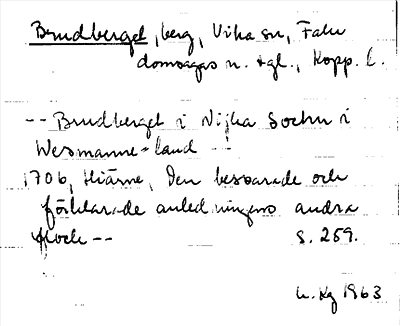 Brudberget, berg, Vika sn, Falu
domsagas n. tgl., Kopp. l.
-- Brudberget i Wijka Sochn i
Wesmanne-land --
1706, Hiärne, Den beswarade och
förklarade anledningens andra
flock -- s. 259.
1963